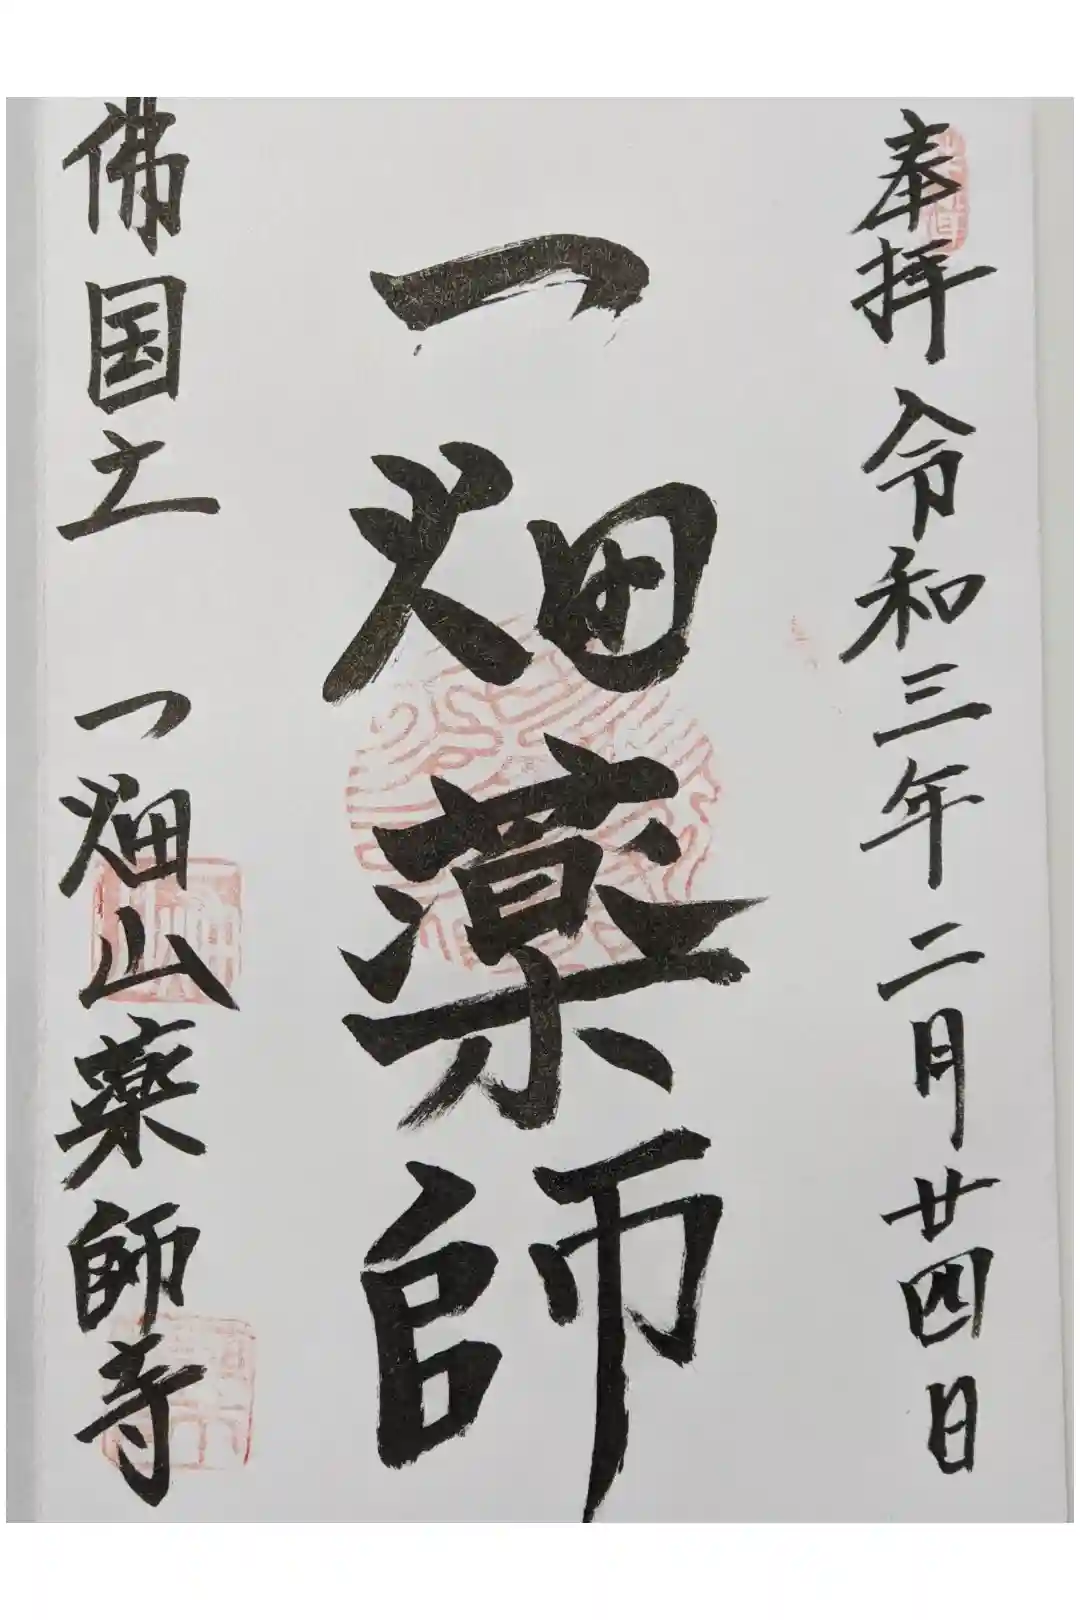 奉拝 令和三年二月廿四日
一畑薬師
佛国土 一畑山薬師寺